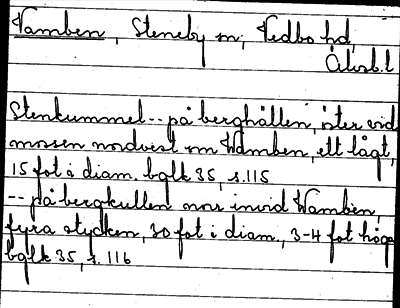 Vamben, Steneby sn, Vedbo hd,
Älvsb.l
Stenkummel -- på berghällen, öster vid
mossen nordvest om Wamben, ett lågt,
15 fot i diam. bglk 35, s. 115
-- på bergkullen norr invid Wamben,
fyra stycken, 30 fot i diam., 3-4 fot höga
bglk 35, s. 116